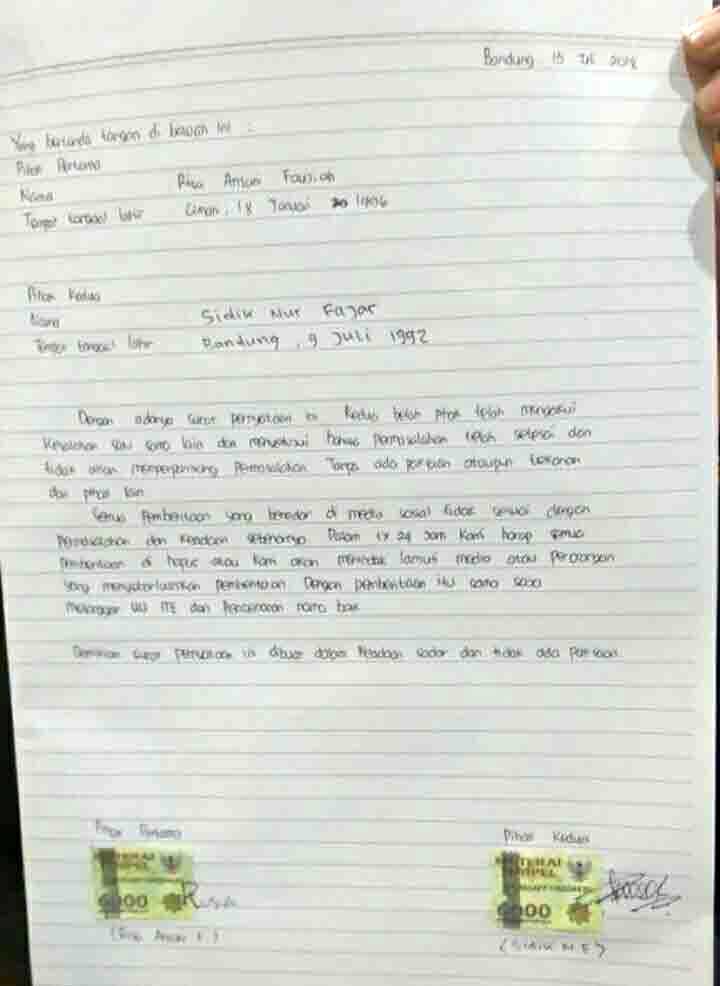 Bandung 15 Juli 2018
Yang bertanda tangan di bawah ini :
Pihak Pertama
Nama
Ansuri Fauziah
Tempat tanggal lahir 18 Januari 1996
Pihak Kedua
Nama Sidik Nur Fajar
Tempat tanggal lahir Bandung, 9 Juli 1992
Dengan adanya surat pernyataan ini kedua belah pihak telah mengakui
kesalahan satu sama lain dan menyetujui bahwa permasalahan telah selesai dan
tidak akan memperpanjang permasalahan. Tanpa ada paksaan ataupun tekanan
dari pihak lain
Semua pemberitaan yang beredar di media sosial tidak sesuai dengan
permasalahan dan keadaan sebenarnya. Dalam 1x24 Jam Kami harap semua
pemberitaan di hapus atau kami akan menindak lanjuti media atau perorangan
yang menyebarluaskan pemberitaan. Dengan pemberitaan itu sama saja
melanggar UU ITE dan Pencemaran nama baik
Demikian surat pernyataan ini dibuat dalam keadaan sadar dan tidak ada paksaan.
Pihak Pertama Pihak Kedua
METERAI METERAI
TEMPEL TEMPEL
6000 6000
(SIDIK N.F)